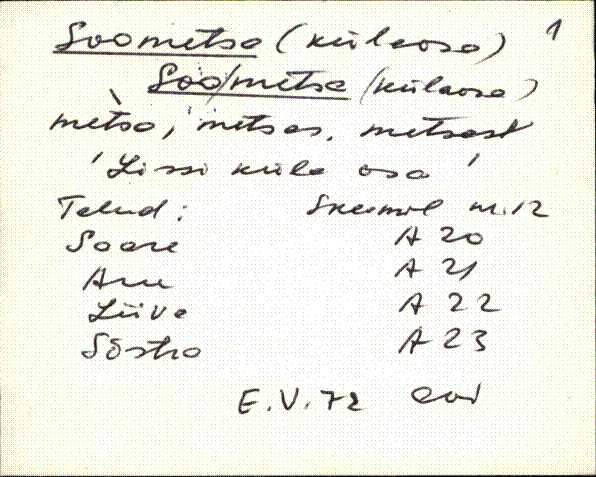 Soometsa (külaosa) 1
Soo/metsa (külaosa)
metsa, metsas, metsast
'Lissi küla osa'
Talud: Skeemil nr. 12
Soare A 20
Aru A 21
Liiva A 22
Sõstra A 23
E.V. 72